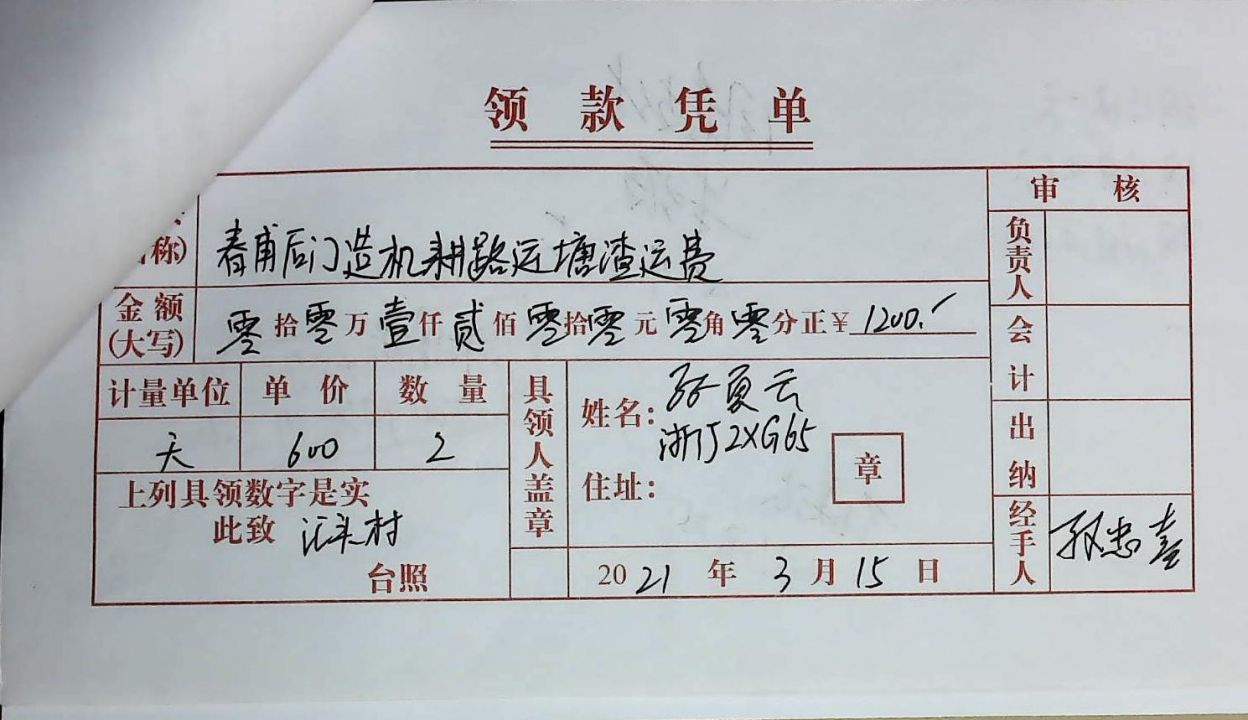 领款凭单
称)
春甫后门造机耕路运塘渣运费
审核
负责人
会计
出纳
经手人
金额(大写)
零拾零万壹仟贰佰零拾零元零角零分正¥1200.
计量单位 单价 数量
天 600 2
具领人盖章
姓名: 夏云
浙J2XG65
住址:
章
上列具领数字是实
此致 汇头村
台照
2021年3月15日
忠